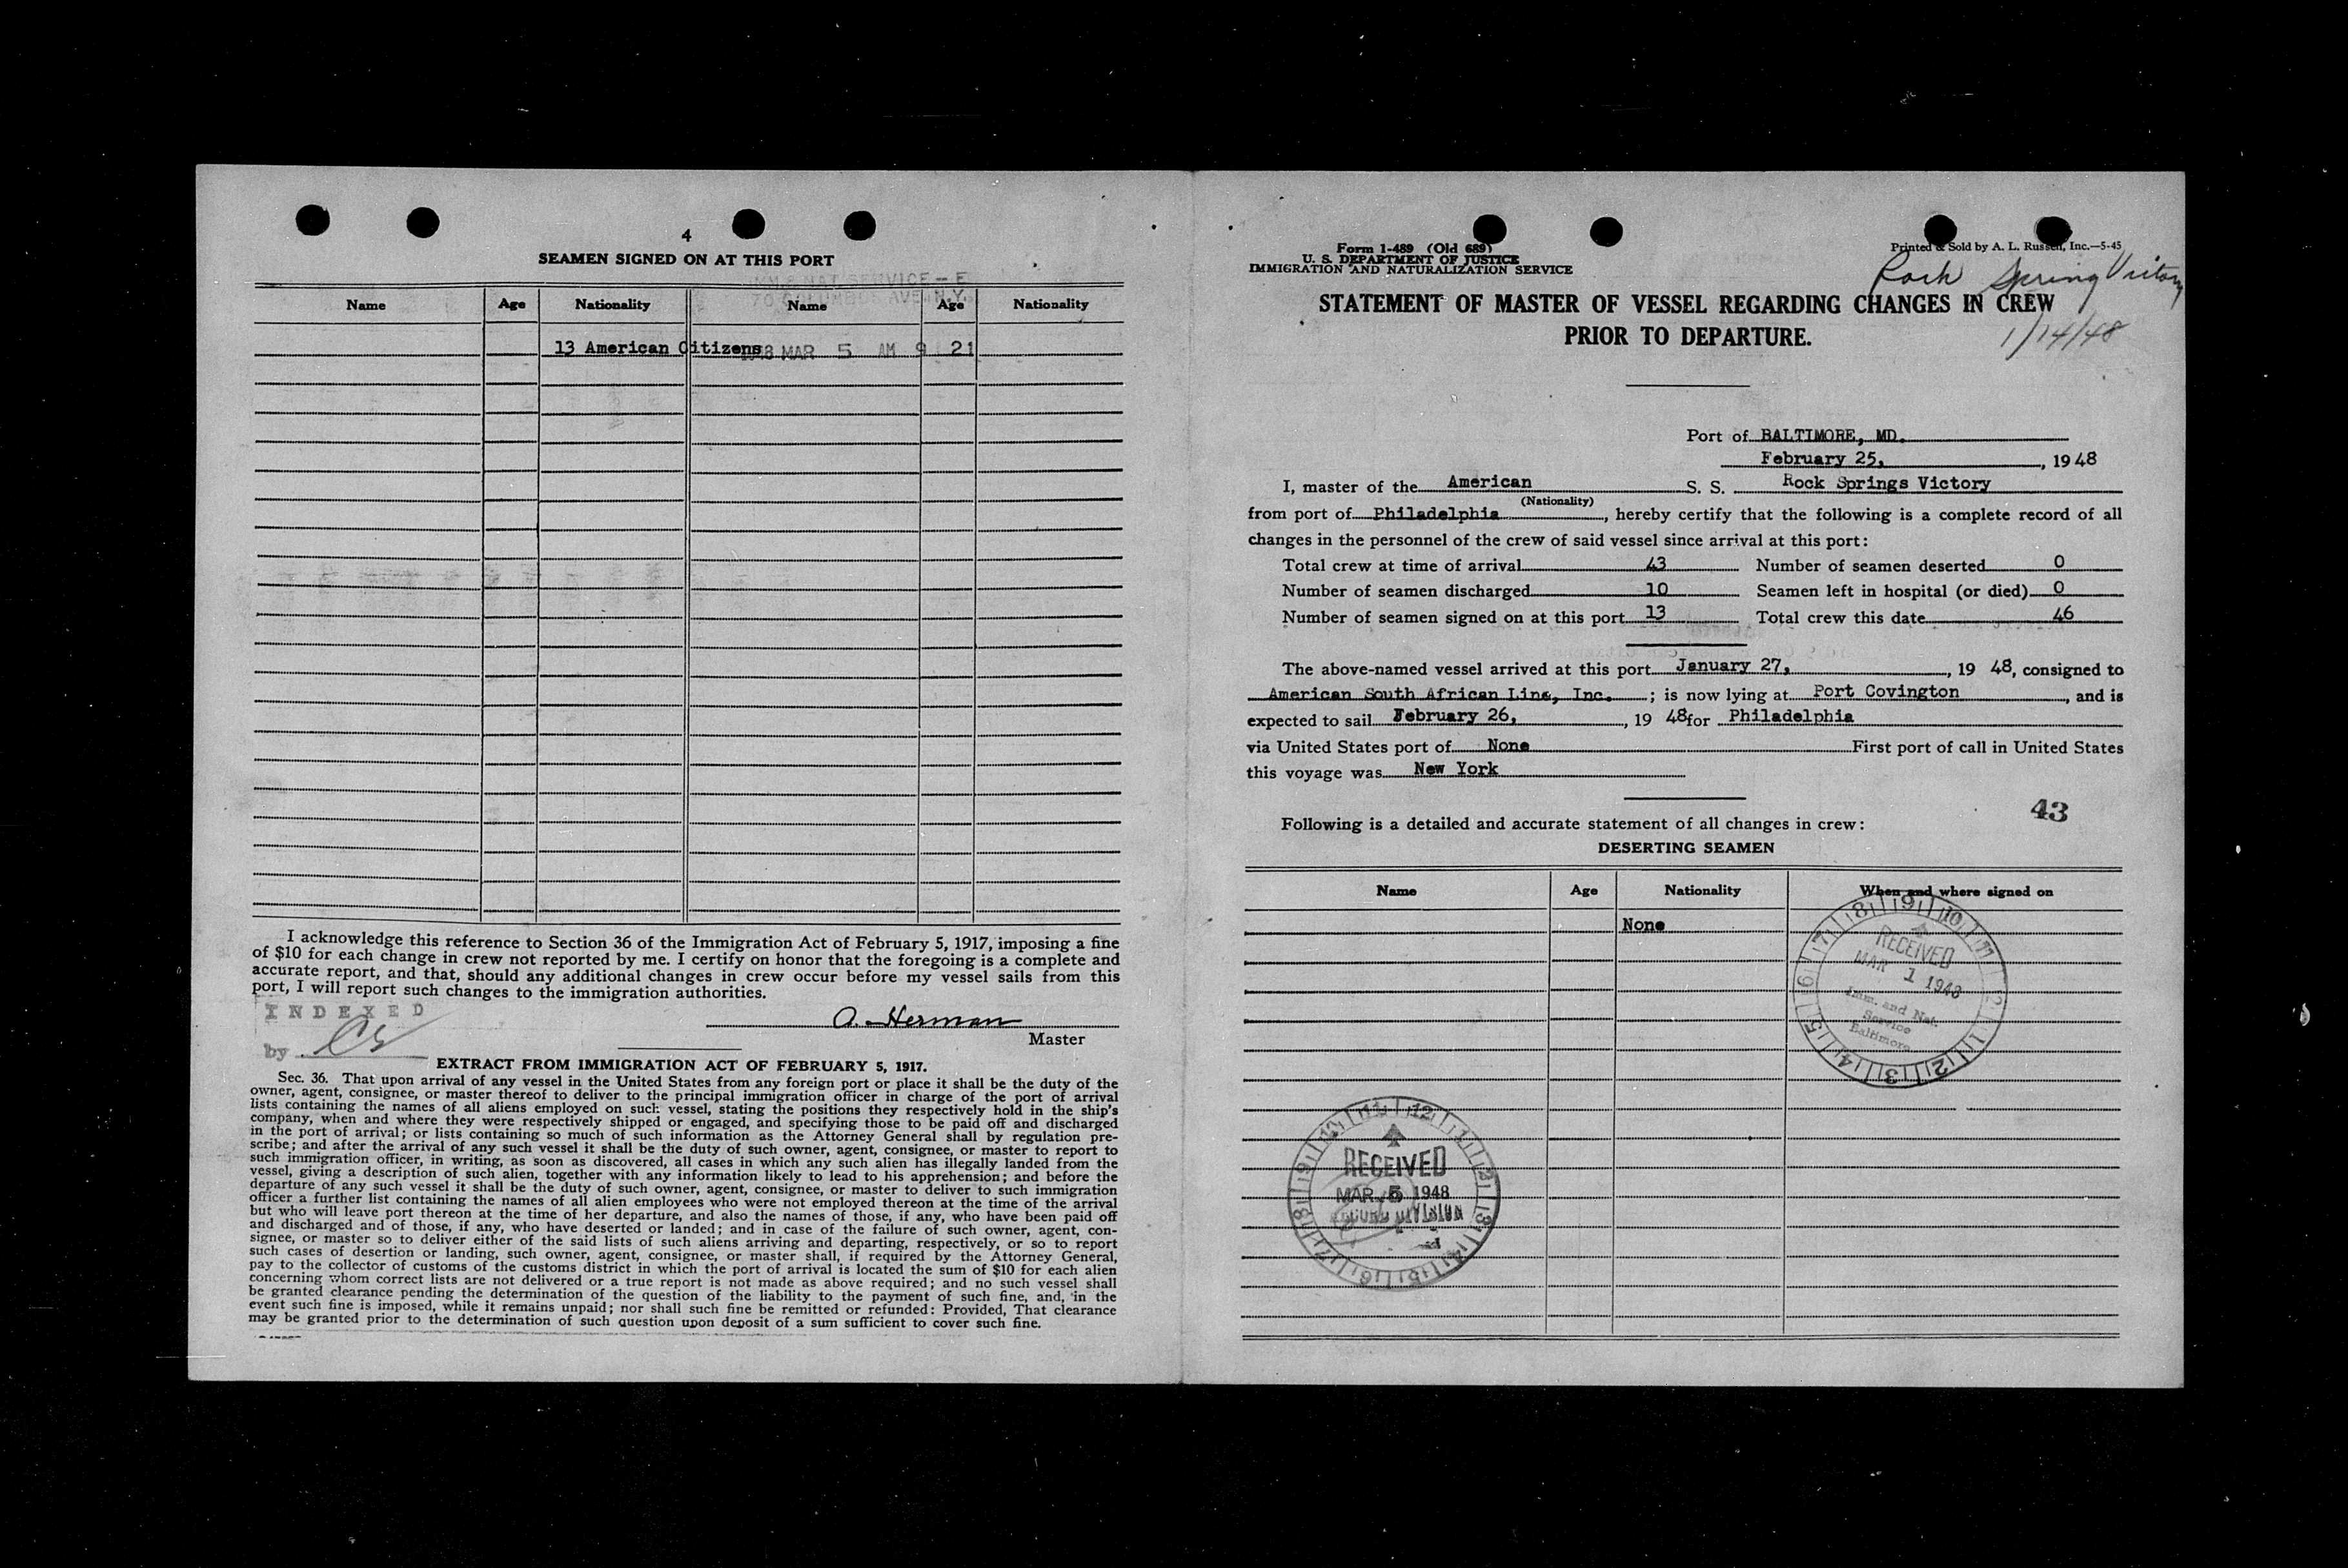 4
SEAMEN SIGNED ON AT THIS PORT
IMM & NAT SERVICE — E
70 COLUMBUS AVE N.Y.
Name Age Nationality Name Age Nationality
13 American Citizens
1948 MAR 5 AM 9 21
I acknowledge this reference to Section 36 of the Immigration Act of February 5, 1917, imposing a fine
of $10 for each change in crew not reported by me. I certify on honor that the foregoing is a complete and
accurate report, and that, should any additional changes in crew occur before my vessel sails from this
port, I will report such changes to the immigration authorities.
INDEXED
by
A. Herman
Master
EXTRACT FROM IMMIGRATION ACT OF FEBRUARY 5, 1917.
Sec. 36. That upon arrival of any vessel in the United States from any foreign port or place it shall be the duty of the
owner, agent, consignee, or master thereof to deliver to the principal immigration officer in charge of the port of arrival
lists containing the names of all aliens employed on such vessel, stating the positions they respectively hold in the ship's
company, when and where they were respectively shipped or engaged, and specifying those to be paid off and discharged
in the port of arrival; or lists containing so much of such information as the Attorney General shall by regulation pre-
scribe; and after the arrival of any such vessel it shall be the duty of such owner, agent, consignee, or master to report to
such immigration officer, in writing, as soon as discovered, all cases in which any such alien has illegally landed from the
vessel, giving a description of such alien, together with any information likely to lead to his apprehension; and before the
departure of any such vessel it shall be the duty of such owner, agent, consignee, or master to deliver to such immigration
officer a further list containing the names of all alien employees who were not employed thereon at the time of the arrival
but who will leave port thereon at the time of her departure, and also the names of those, if any, who have been paid off
and discharged and of those, if any, who have deserted or landed; and in case of the failure of such owner, agent, con-
signee, or master so to deliver either of the said lists of such aliens arriving and departing, respectively, or so to report
such cases of desertion or landing, such owner, agent, consignee, or master shall, if required by the Attorney General,
pay to the collector of customs of the customs district in which the port of arrival is located the sum of $10 for each alien
concerning whom correct lists are not delivered or a true report is not made as above required; and no such vessel shall
be granted clearance pending the determination of the question of the liability to the payment of such fine, and, in the
event such fine is imposed, while it remains unpaid; nor shall such fine be remitted or refunded: Provided, That clearance
may be granted prior to the determination of such question upon deposit of a sum sufficient to cover such fine.
Form 1-489 (Old 689)
U. S. DEPARTMENT OF JUSTICE
IMMIGRATION AND NATURALIZATION SERVICE
Printed & Sold by A. L. Russell, Inc.—5-45
Rock Spring Victory
STATEMENT OF MASTER OF VESSEL REGARDING CHANGES IN CREW
PRIOR TO DEPARTURE.
1/14/48
Port of BALTIMORE, MD.
February 25, , 1948
I, master of the American S. S. Rock Springs Victory
(Nationality)
from port of Philadelphia , hereby certify that the following is a complete record of all
changes in the personnel of the crew of said vessel since arrival at this port:
Total crew at time of arrival 43 Number of seamen deserted 0
Number of seamen discharged 10 Seamen left in hospital (or died) 0
Number of seamen signed on at this port 13 Total crew this date 46
The above-named vessel arrived at this port January 27, , 19 48, consigned to
American South African Line, Inc. ; is now lying at Port Covington , and is
expected to sail February 26, , 19 48 for Philadelphia
via United States port of None First port of call in United States
this voyage was New York
43
Following is a detailed and accurate statement of all changes in crew:
DESERTING SEAMEN
Name Age Nationality When and where signed on
None
RECEIVED
MAR 1 1948
Imm. and Nat.
Service
Baltimore
RECEIVED
MAR 5 1948
RECORD DIVISION